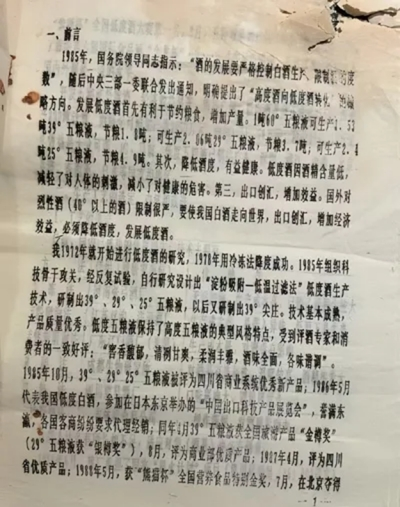 一、前言
1985年，国务院领导同志指示："酒的发展要严格控制白酒生产、限制
数"，随后中央三部一委联合发出通知，明确提出了"高度酒向低度酒转化"的
略方向。发展低度酒首先有利于节约粮食，增加产量：1吨60°五粮液可生产1.53
吨39°五粮液，节粮1.8吨；可生产2.06吨29°五粮液，节粮3.7吨；可生产2.
吨25°五粮液，节粮4.9吨。其次，降低酒度，有益健康。低度酒因酒精含量低，
减轻了对人体的刺激，减小了对健康的危害。第三，出口创汇，增加效益。国外对
烈性酒（40°以上的酒）限制很严，要使我国白酒走向世界，出口创汇，增加经济
效益，必须降低酒度，发展低度酒。
我1972年就开始进行低度酒的研究，1978年用冷冻法降度成功。1985年组织科
技骨干攻关，经反复试验，自行研究设计出"淀粉吸附—低温过滤法"低度酒生产
技术，研制出39°、29°、25°五粮液，以后又研制出39°尖庄。技术基本成熟，
产品质量优秀。低度五粮液保持了高度五粮液的典型风格特点，受到评酒专家和消
费者的一致好评："窖香馥郁，清冽甘爽，柔润丰雅，酒味全面，各味谐调"。
1985年10月，39°、29°、25°五粮液被评为四川省商业系统优秀新产品；1986年5月
代表我国低度白酒，参加在日本东京举办的"中国出口科技产品展览会"，誉满东
瀛，各国客商纷纷要求代理经销，同年4月39°五粮液获全国旅游产品"金樽奖"
（29°五粮液获"银樽奖"），8月，评为商业部优质产品；1987年4月，评为四川
省优质产品；1988年5月，获"熊猫杯"全国营养食品特别金奖，7月，在北京夺得
—1—